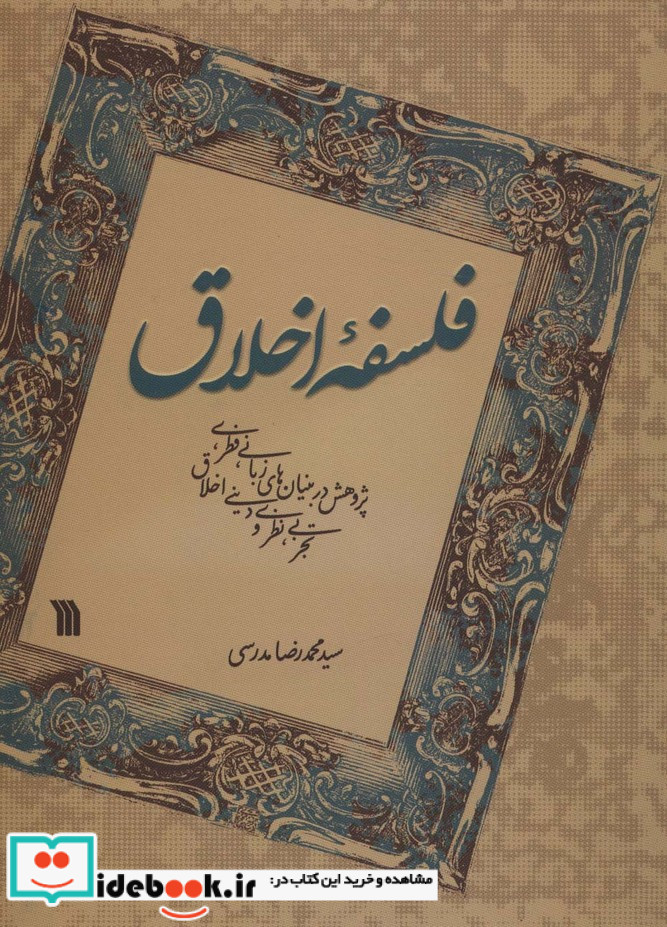 فلسفهٔ اخلاق
پژوهش در بنیان‌های زبانی، فطری،
تجربی، نظری و دینی اخلاق
سید محمدرضا مدرسی
مشاهده و خرید این کتاب در:
idebook.ir